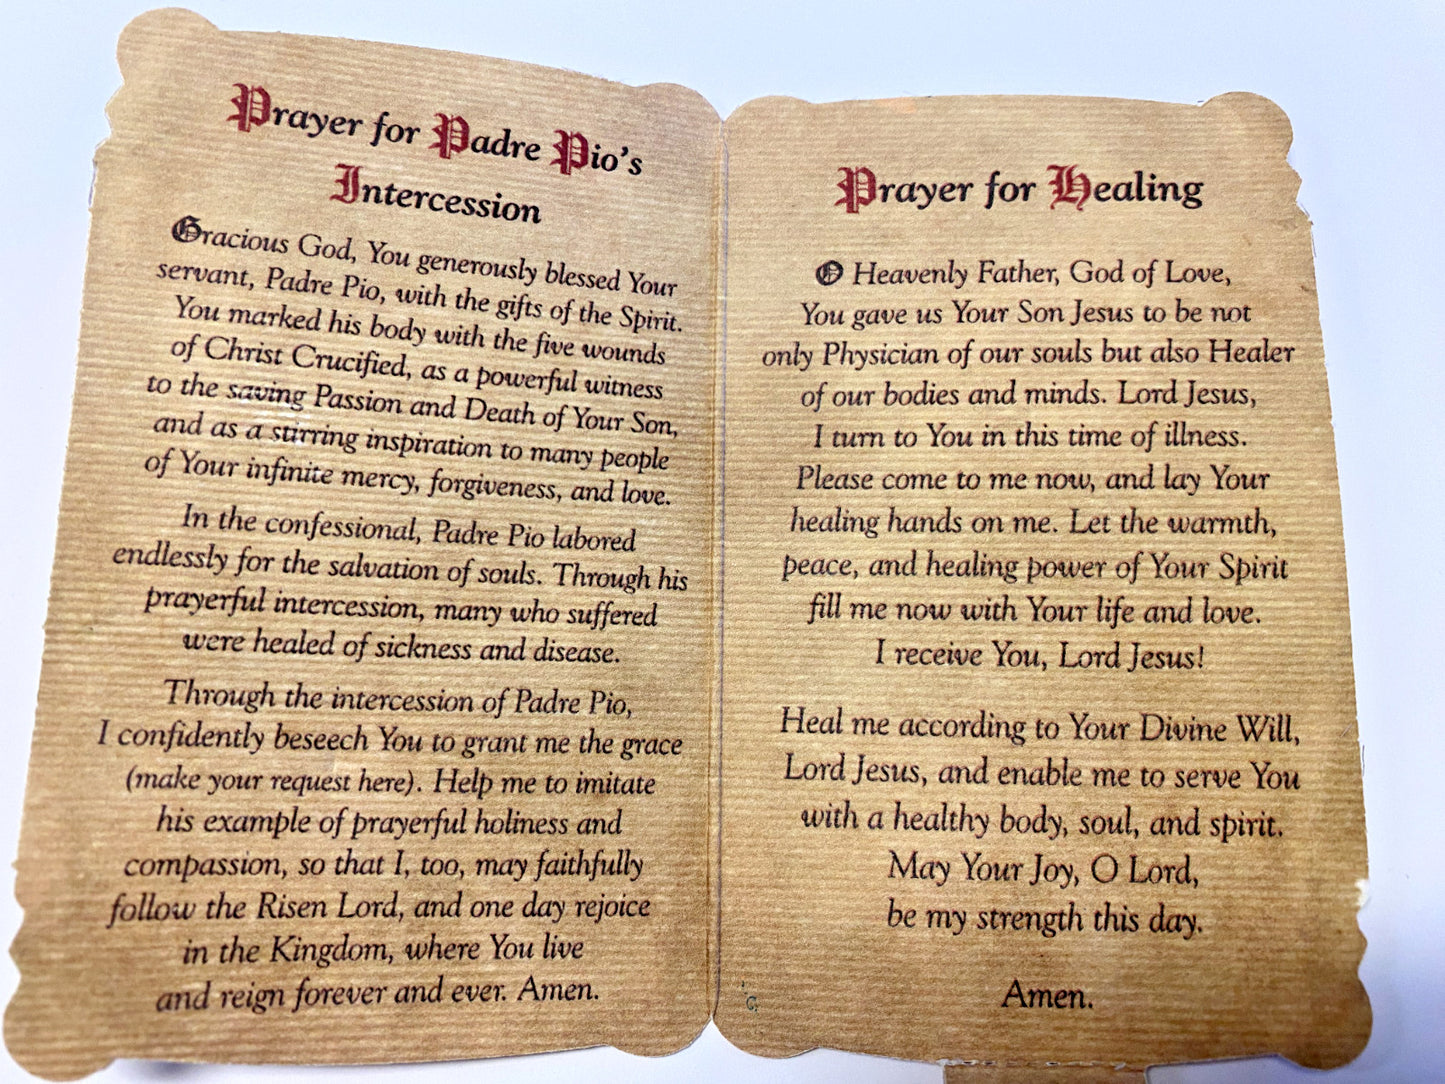 Prayer for Padre Pio's
Intercession
Gracious God, You generously blessed Your
servant, Padre Pio, with the gifts of the Spirit.
You marked his body with the five wounds
of Christ Crucified, as a powerful witness
to the saving Passion and Death of Your Son,
and as a stirring inspiration to many people
of Your infinite mercy, forgiveness, and love.
In the confessional, Padre Pio labored
endlessly for the salvation of souls. Through his
prayerful intercession, many who suffered
were healed of sickness and disease.
Through the intercession of Padre Pio,
I confidently beseech You to grant me the grace
(make your request here). Help me to imitate
his example of prayerful holiness and
compassion, so that I, too, may faithfully
follow the Risen Lord, and one day rejoice
in the Kingdom, where You live
and reign forever and ever. Amen.
Prayer for Healing
O Heavenly Father, God of Love,
You gave us Your Son Jesus to be not
only Physician of our souls but also Healer
of our bodies and minds. Lord Jesus,
I turn to You in this time of illness.
Please come to me now, and lay Your
healing hands on me. Let the warmth,
peace, and healing power of Your Spirit
fill me now with Your life and love.
I receive You, Lord Jesus!
Heal me according to Your Divine Will,
Lord Jesus, and enable me to serve You
with a healthy body, soul, and spirit.
May Your Joy, O Lord,
be my strength this day.
Amen.